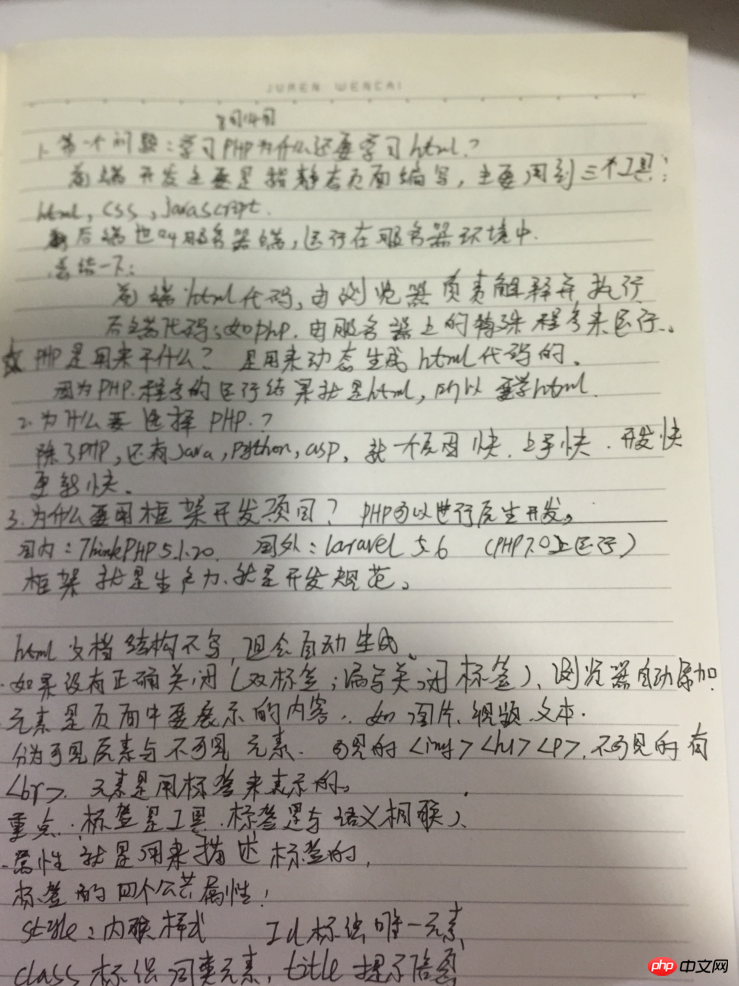 JUREN WENCAI
8月14日
1. 第一个问题:学习PHP为什么还要学习html?
前端开发主要是指静态页面编写,主要用到三个工具:
html, css, javascript.
后端也叫服务器端,运行在服务器环境中.
总结一下:
前端html代码,由浏览器负责解释并执行
后端代码;如php.由服务器上的特殊程序来运行。
PHP是用来干什么?是用来动态生成html代码的。
因为PHP.程序的运行结果就是html,所以要学html.
2.为什么要选择PHP.?
除了PHP,还有Java,Python,asp,就一个原因快.上手快.开发快
更新快。
3.为什么要用框架开发项目?PHP可以进行原生开发。
国内:ThinkPHP5.1.20. 国外:laravel 5.6 (PHP7.0上运行)
框架就是生产力.就是开发规范。
html文档结构不写,但会自动生成.
·如果没有正确关闭(双标签;漏写关闭标签)、浏览器自动添加.
元素是页面中要展示的内容.如图片.视频.文本.
分为可见元素与不可见元素.可见的<img><h1><p>.不可见的有
<br>.元素是用标签来表示的。
重点.标签是工具.标签是与语义相联.
·属性就是用来描述标签的.
标签的四个公共属性!
style:内联样式 Id标识唯一元素
class标识同类元素,title提示信息
php 中文网